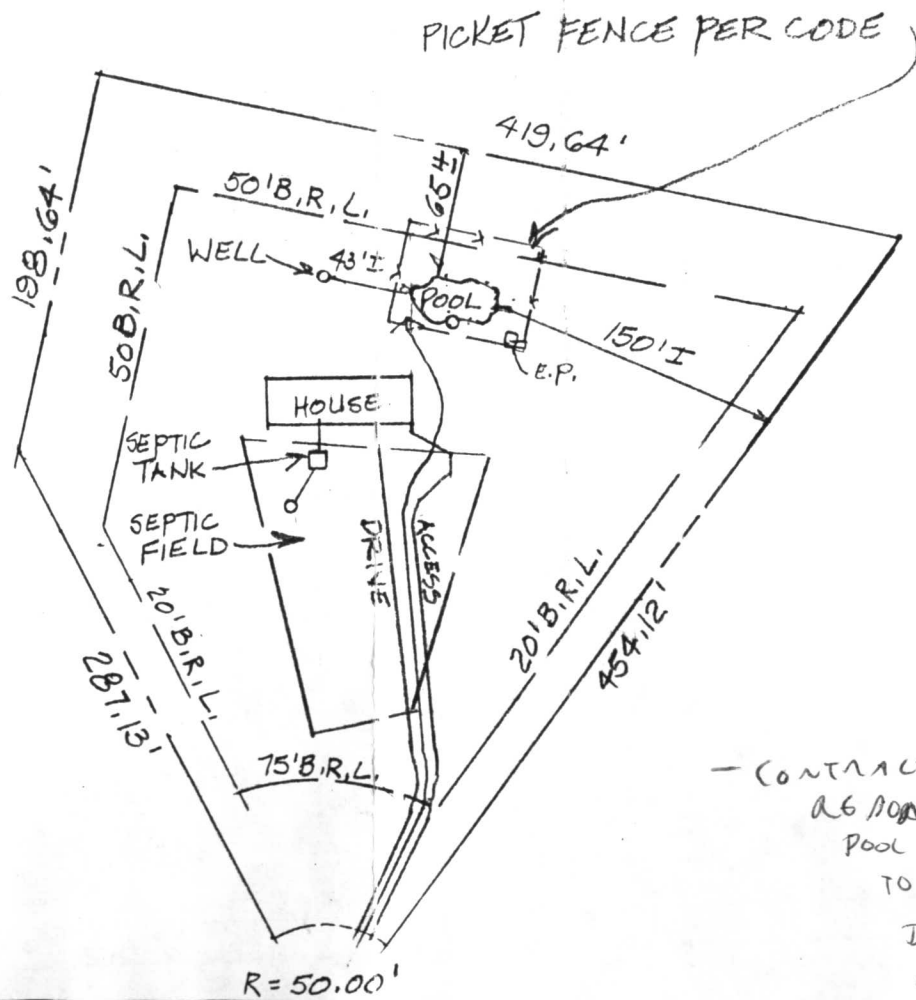 PICKET FENCE PER CODE
419.64'
198.64'
50' B.R.L.
65'±
50 B.R.L.
WELL
43'±
POOL
150'±
E.P.
HOUSE
SEPTIC
TANK
SEPTIC
FIELD
DRIVE
ACCESS
20' B.R.L.
20' B.R.L.
454.12'
287.13'
75' B.R.L.
R = 50.00'
- CONTRAC
POOL
TO